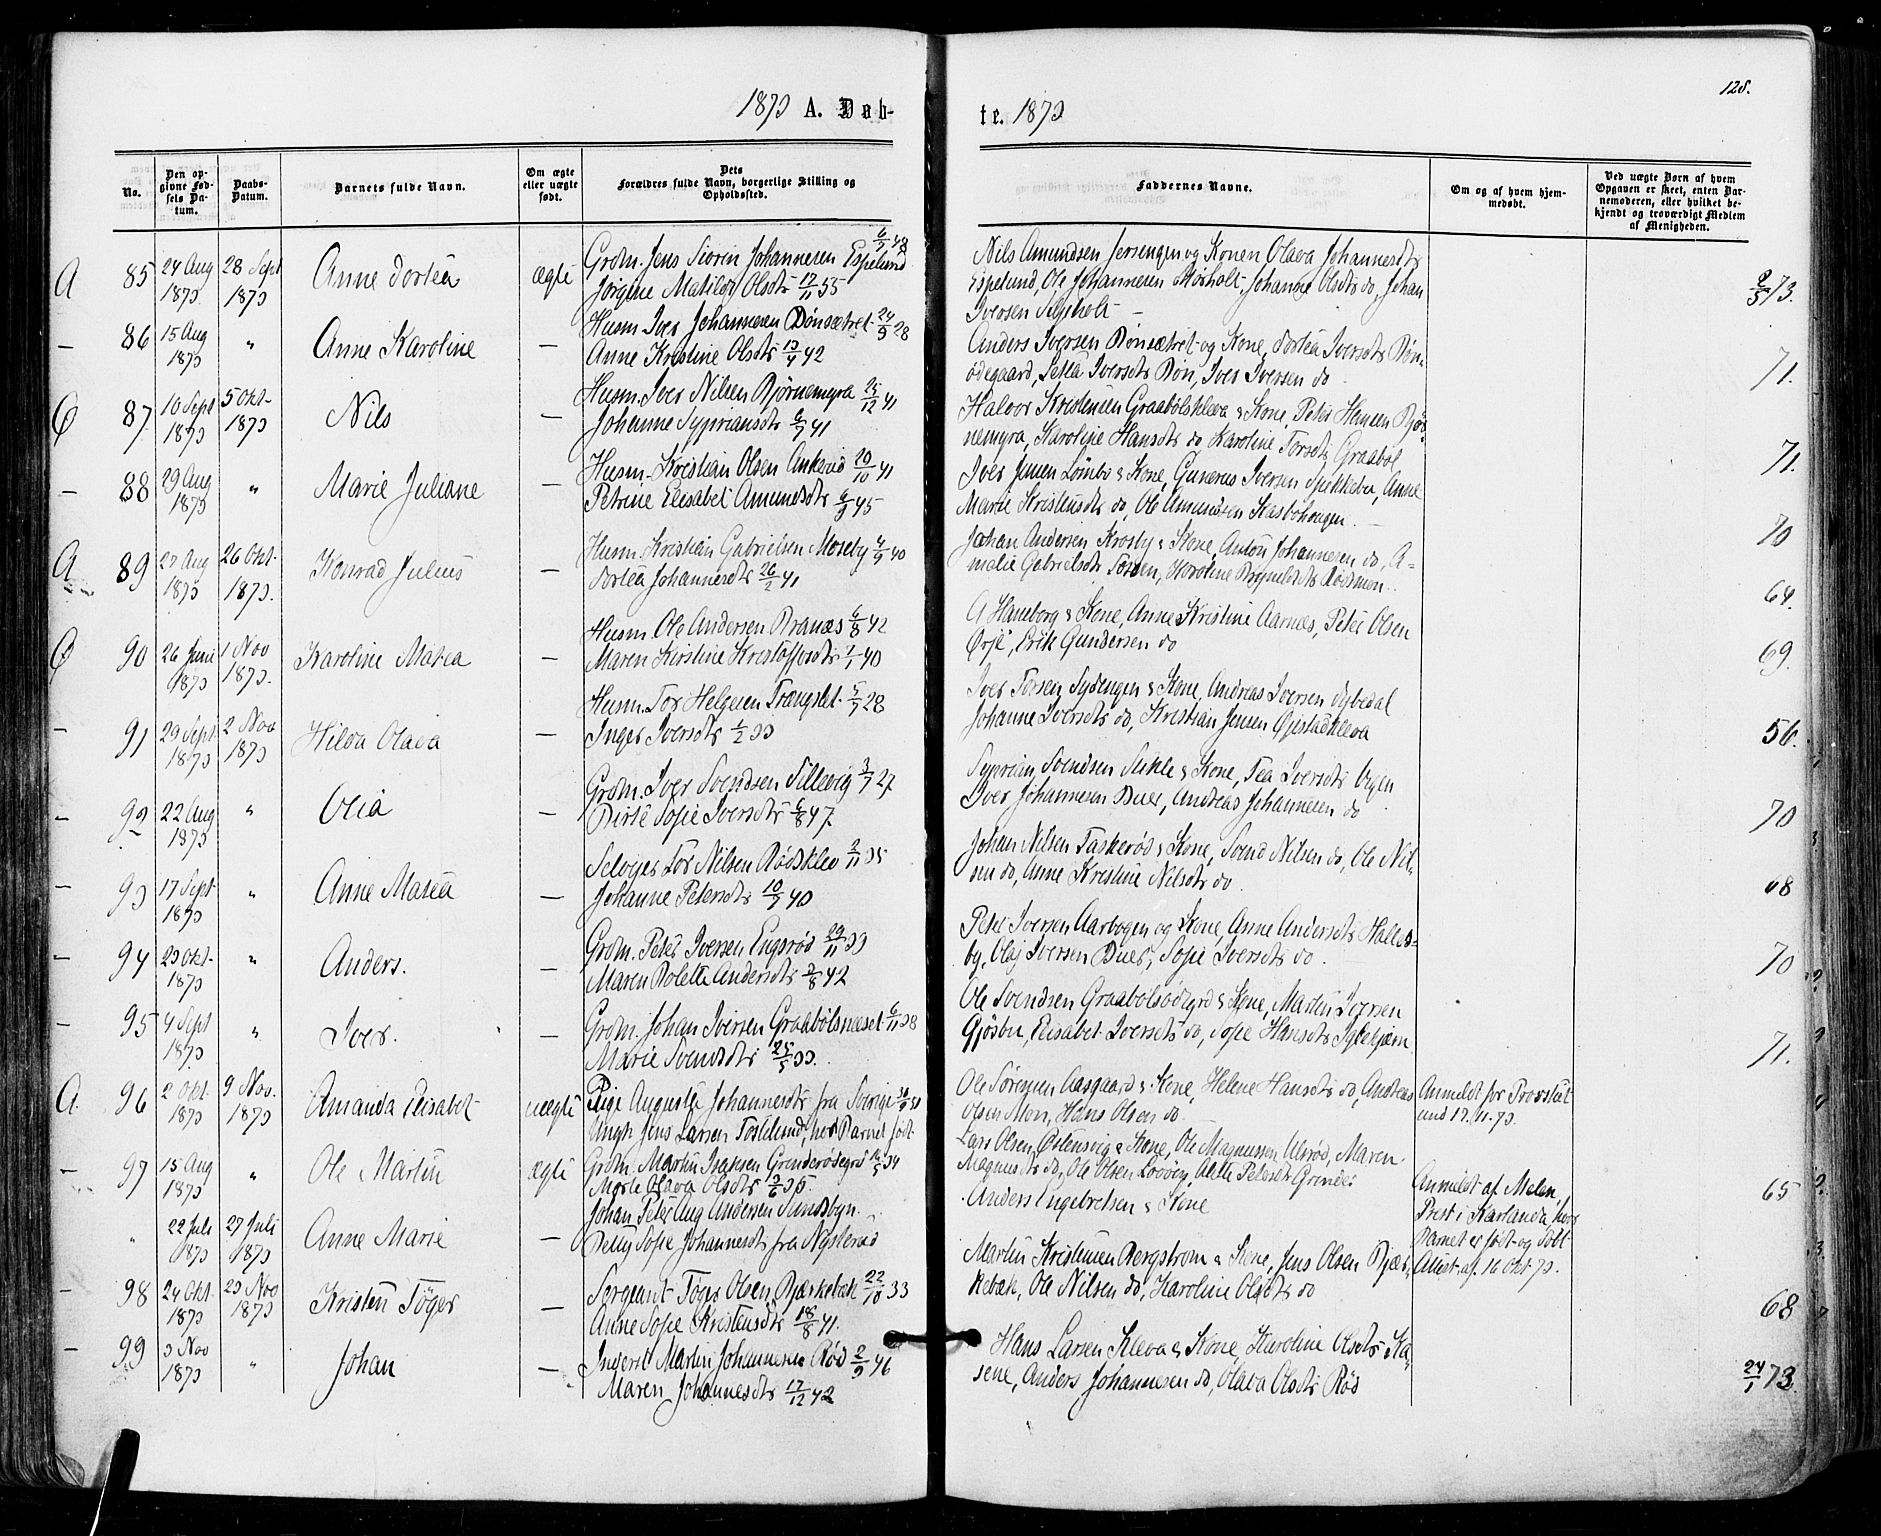 128.
1873 A. Døb-
te. 1873
No.
Den op-
givne Fød-
sels Da-
tum.
Daabs-
Datum.
Barnets fulde Navn.
Om ægte
eller uægte
født.
Dets
Forældres fulde Navn, borgerlige Stilling og
Opholdssted.
Faddernes Navne.
Om og af hvem hjem-
medøbt.
Ved uægte Børn af hvem
Opgaven er skeet, enten Bar-
nemoderen, eller hvilket be-
kjendt og troværdigt Medlem
af Menigheden.
A 85 24 Aug 1873. 28 Sept 1873 Anne Dortea ægte
Grdm. Jens Siorin Johannesen Espelund 6/7 48
Jørgine Matilde Olsdtr 17/11 55
Nils Amundsen Jersengen og Konen Olava Johannesdtr
Espelund, Ole Johannesen Morholt, Johanne Olsdtr do, Johan
Iversen
6/3 73.
— 86 15 Aug 1873 " Anne Karoline —
Husm. Iver Johannesen Bønsætret 24/9 28
Anne Kristine Olsdtr 13/4 42
Anders Iversen Bønsætret og Kone, Dortea Iversdtr Bøn-
ødegaard, Petra Iversdtr Bøn, Iver Iversen do
71.
C 87 10 Sept 1873 5 Okt- 1873 Nils —
Husm. Iver Nilsen Bjørnemyra 25/12 41
Johanne Sypriansdtr 6/7 41
Halvor Kristensen Graabølskleva & Kone, Peter Hansen Bjør-
nemyra, Karoline Hansdtr do Karoline Torsdtr Graabøl
71.
— 88 29 Aug 1873 " Marie Juliane —
Husm. Kristian Olsen Ankerud 20/10 41
Petrine Elisabet Amundsdtr 6/9 45
Iver Jensen Lømbo & Kone, Gunerus Iversen Spikkebø, Anne
Marie Kristensdtr do, Ole Amundsen Kasbøhaugen. —
70
A 89 27 Aug 1873 26 Okt- 1873. Konrad Julius —
Husm. Kristian Gabrielsen Moseby 4/9 40
Dortea Johannesdtr 26/2 41
Johan Andersen Krosby & Kone, Anton Johannesen do, A-
malie Gabrielsdtr Tørsen, Karoline Brynildsdtr Rødsmon.
64.
C 90 26 Juni 1873 1 Nov 1873. Karoline Matea —
Husm. Ole Andersen Branæs 6/8 42
Maren Kirstine Kristoffersdtr 7/1 40
A Haneborg & Kone, Anne Kristine Aarnæs, Peter Olsen
Ørje, Erik Gundersen do
69.
— 91 29 Sept. 1873 2 Nov 1873 Hilda Olava —
Husm. Tor Helgesen Trængslet 5/7 28
Inger Iversdtr 1/2 33
Iver Torsen Sydengen & Kone, Andreas Iversen Sybedal
Johanne Iversdtr do, Kristian Jensen Ørstadkleva
56.
— 92 22 Aug 1873 " Olia —
Grdm. Iver Svendsen Sillevig 3/7 27
Birte Sofie Iversdtr 6/8 47
Syprian Svendsen Sukke & Kone, Tea Iversdtr Vegen
Iver Johannesen Buer, Andreas Johannesen do
70
— 93 17 Sept. 1873 " Anne Matea —
Selveger Tor Nilsen Rødsklev 2/11 35
Johanne Petersdtr 10/7 40
Johan Nilsen Taskerød & Kone, Svend Nilsen do, Ole Nil-
sen do, Anne Kristine Nilsdtr do.
68
— 94 23 Okt- 1873 " Anders. —
Grdm. Peter Iversen Engsrød 29/11 33
Maren Rolette Andersdtr 3/8 42
Peter Iversen Aarbogen og Kone, Anne Andersdtr Halles-
by, Olaf Iversen Buer, Sofie Iversdtr do.
70
— 95 4 Sept 1873. " Iver. —
Grdm. Johan Iversen Graabølsnæset 6/11 38
Marie Svendsdtr 25/5 33.
Ole Svendsen Graabølsødegrd & Kone, Martin Iversen
Gjøsbu, Elisabet Iversdtr do, Sofie Hansdtr Sykehjærn.
71.
A. 96 2 Okt. 1873 9 Nov. 1873 Amanda Elisabet uægte
Pige Augusta Johannesdtr fra Sverige 30/9
Ungk. Jens Larsen Toslelund, hos Barnet født
Ole Sørensen Aasgaard & Kone, Helene Hansdtr do, Andreas
Olsen Mon, Hans Olsen do
Anmeldt for Provsten
und 17.11.73.
— 97 15 Aug 1873 " Ole Martin ægte
Grdm. Martin Isaksen Grinderødegrd 16/5 34
Marte Olava Olsdtr 3/6 35.
Lars Olsen Østensvig & Kone, Ole Magnussen Ulsrød, Maren
Magnusdtr do, Ole Olsen Løvøen, Alette Petersdtr Grinder
65
" 22 Juli 1873 27 Juli 1873 Anne Marie —
Johan Peter Aug Andersen Sundsbyn
Betty Sofie Johannesdtr fra Nysterud
Anders Engebretsen & Kone
Anmeldt af Melen,
Prest i Karlanda, hvor
Barnet er født og døbt
Attest af 16 Okt 73.
— 98 24 Okt. 1873 23 Nov 1873 Kristen Tøger —
Sergeant Tøger Olsen Bjærkebæk 22/10 33
Anne Sofie Kristensdtr 18/8 41.
Martin Kristensen Bergstrøm & Kone, Jens Olsen Bjær-
kebæk, Ole Nilsen do, Karoline Olsdtr do
68
— 99 3 Nov 1873 " Johan —
Inderst Martin Johannesen Rød 2/9 46
Maren Johannesdtr 17/12 42
Hans Larsen Kleva & Kone Karoline Olsdtr Ka-
sene, Anders Johannesen do, Olava Olsdtr Rød
24/1 73.